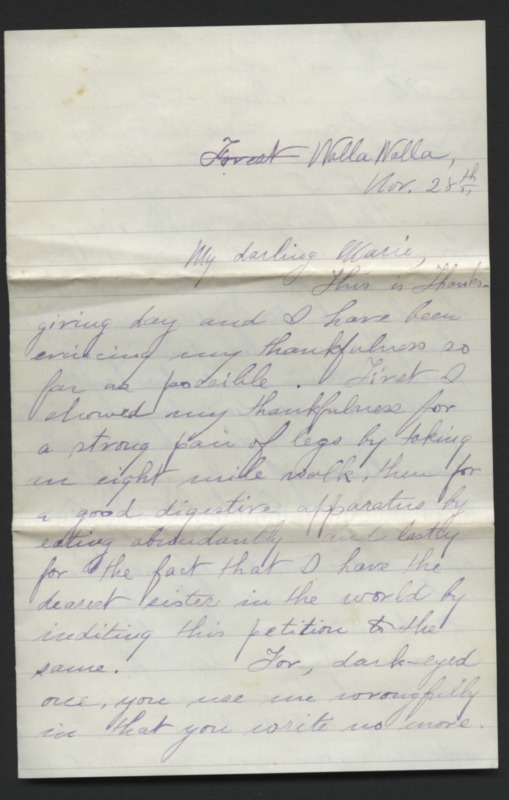 Forest Walla Walla,
Nov. 28th,
My darling Marie,
This is Thanks-
giving day and I have been
evincing my thankfulness so
far as possible. First I
showed my thankfulness for
a strong pair of legs by taking
an eight mile walk, then for
a good digestive apparatus by
eating abundantly and lastly
for the fact that I have the
dearest sister in the world by
inditing this petition to the
same. For, dark-eyed
one, you use me wrongfully
in that you write no more.